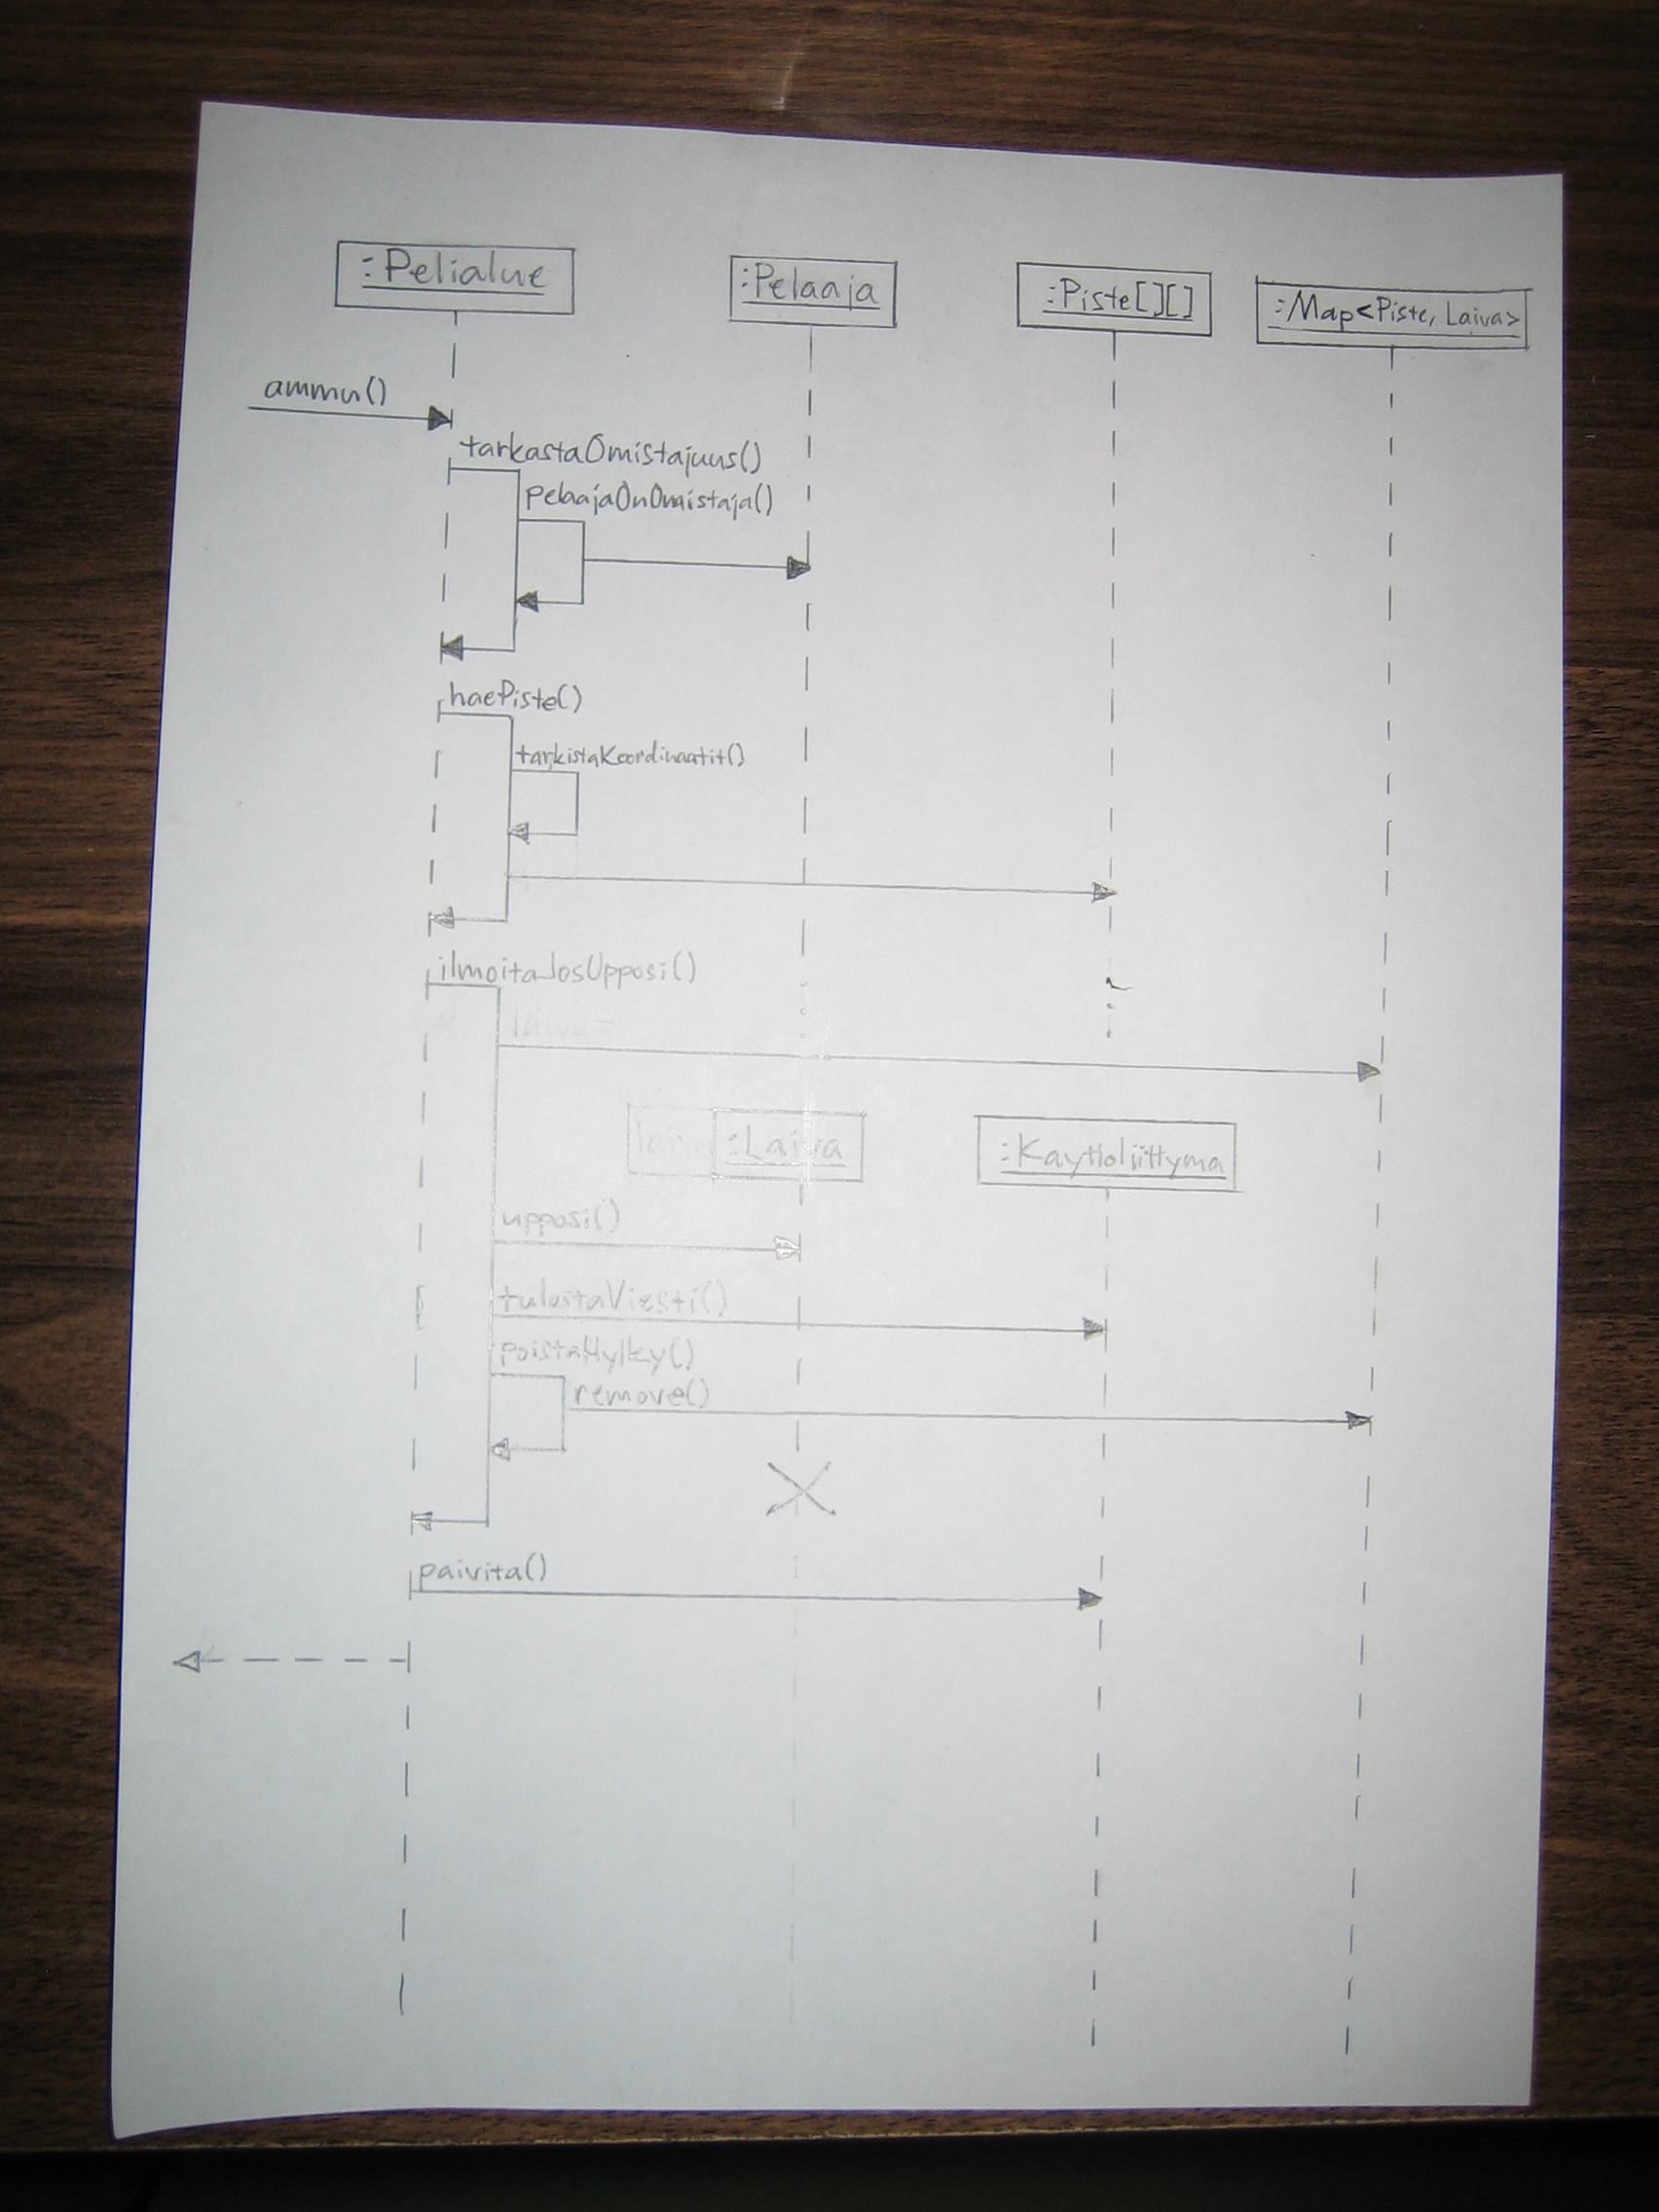 :Pelialue
:Pelaaja
:Piste[][]
:Map<Piste, Laiva>
ammu()
tarkastaOmistajuus()
pelaajaOnOmistaja()
haePiste()
tarkistaKoordinaatit()
ilmoitaJosUpposi()
laiva=
:Laiva
:Kayttoliittyma
upposi()
tulostaViesti()
poistaHylky()
remove()
paivita()